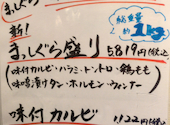 新!
総重量
約1kg
ましぐら盛り 5819円(税込)
味付カルビ・ハラミ・トントロ・鶏もも
味噌漬けタン・ホルモン・ウィンナー
味付カルビ 1122円(税込)